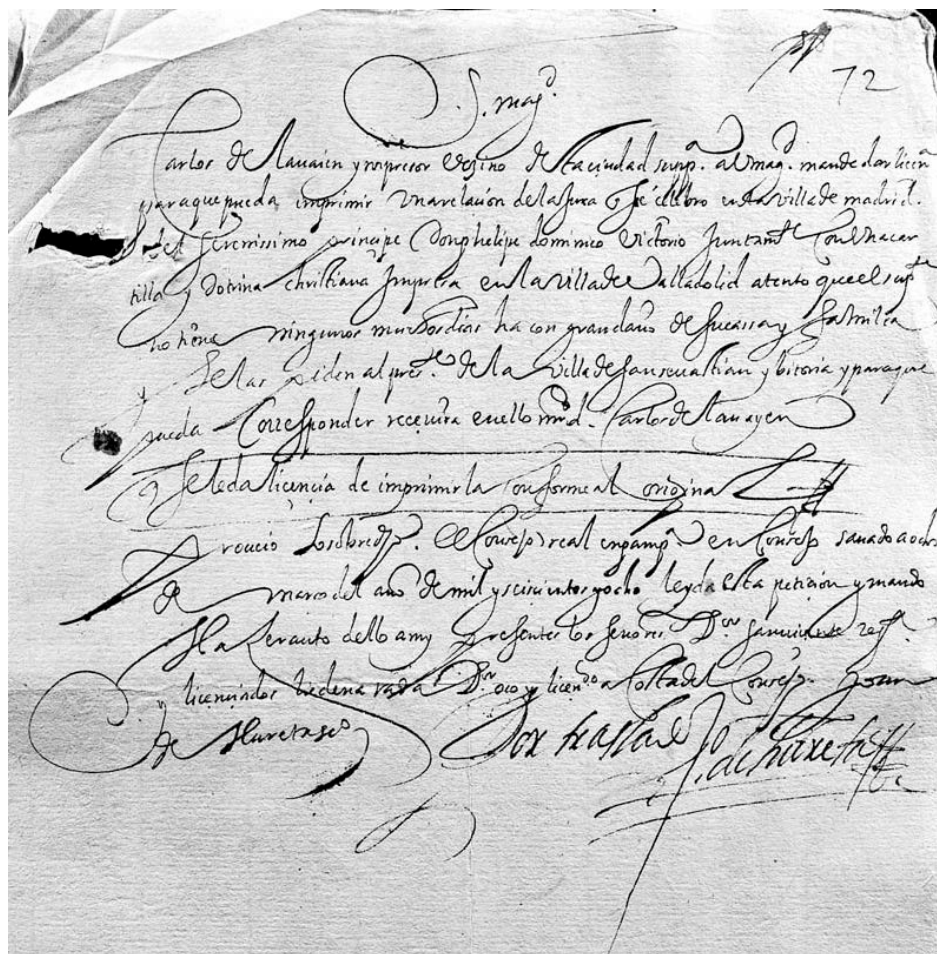 72
S. mag.d
Carlos de Lauaien ynpresor vezino desta ciudad supp.ca a V mag.d mande dar licen.a
para que pueda imprimir vna relación de la jura q se celebro en la villa de madrid.
del serenissimo príncipe Don phelipe dominico victorio juntam.te con vna car
tilla y dotrina christiana Impresa en la villa de Valladolid atento que el sup.te
no tiene ningunos muchos dias ha con gran daño de su cassa y familia
y se las piden al pres.te de la villa de san seuastian y bitoria y para que
pueda Corresponder receuira en ello mrd. Carlos de lauayen
Se le da licencia de imprimirla conforme al original
Proueio lo sobred.ho el Consejo real en pamp.na en Consejo sauado a ocho
de março del año de mil y seiscientos y ocho leyda esta petición y mando
Hazer auto dello a my presentes los señores D.or san vicente reg.te
y licenciados liedena rada D.or oco y licen.do acosta del Consejo. Joan
de Hureta ss.o
Por traslado Jo. de hureta